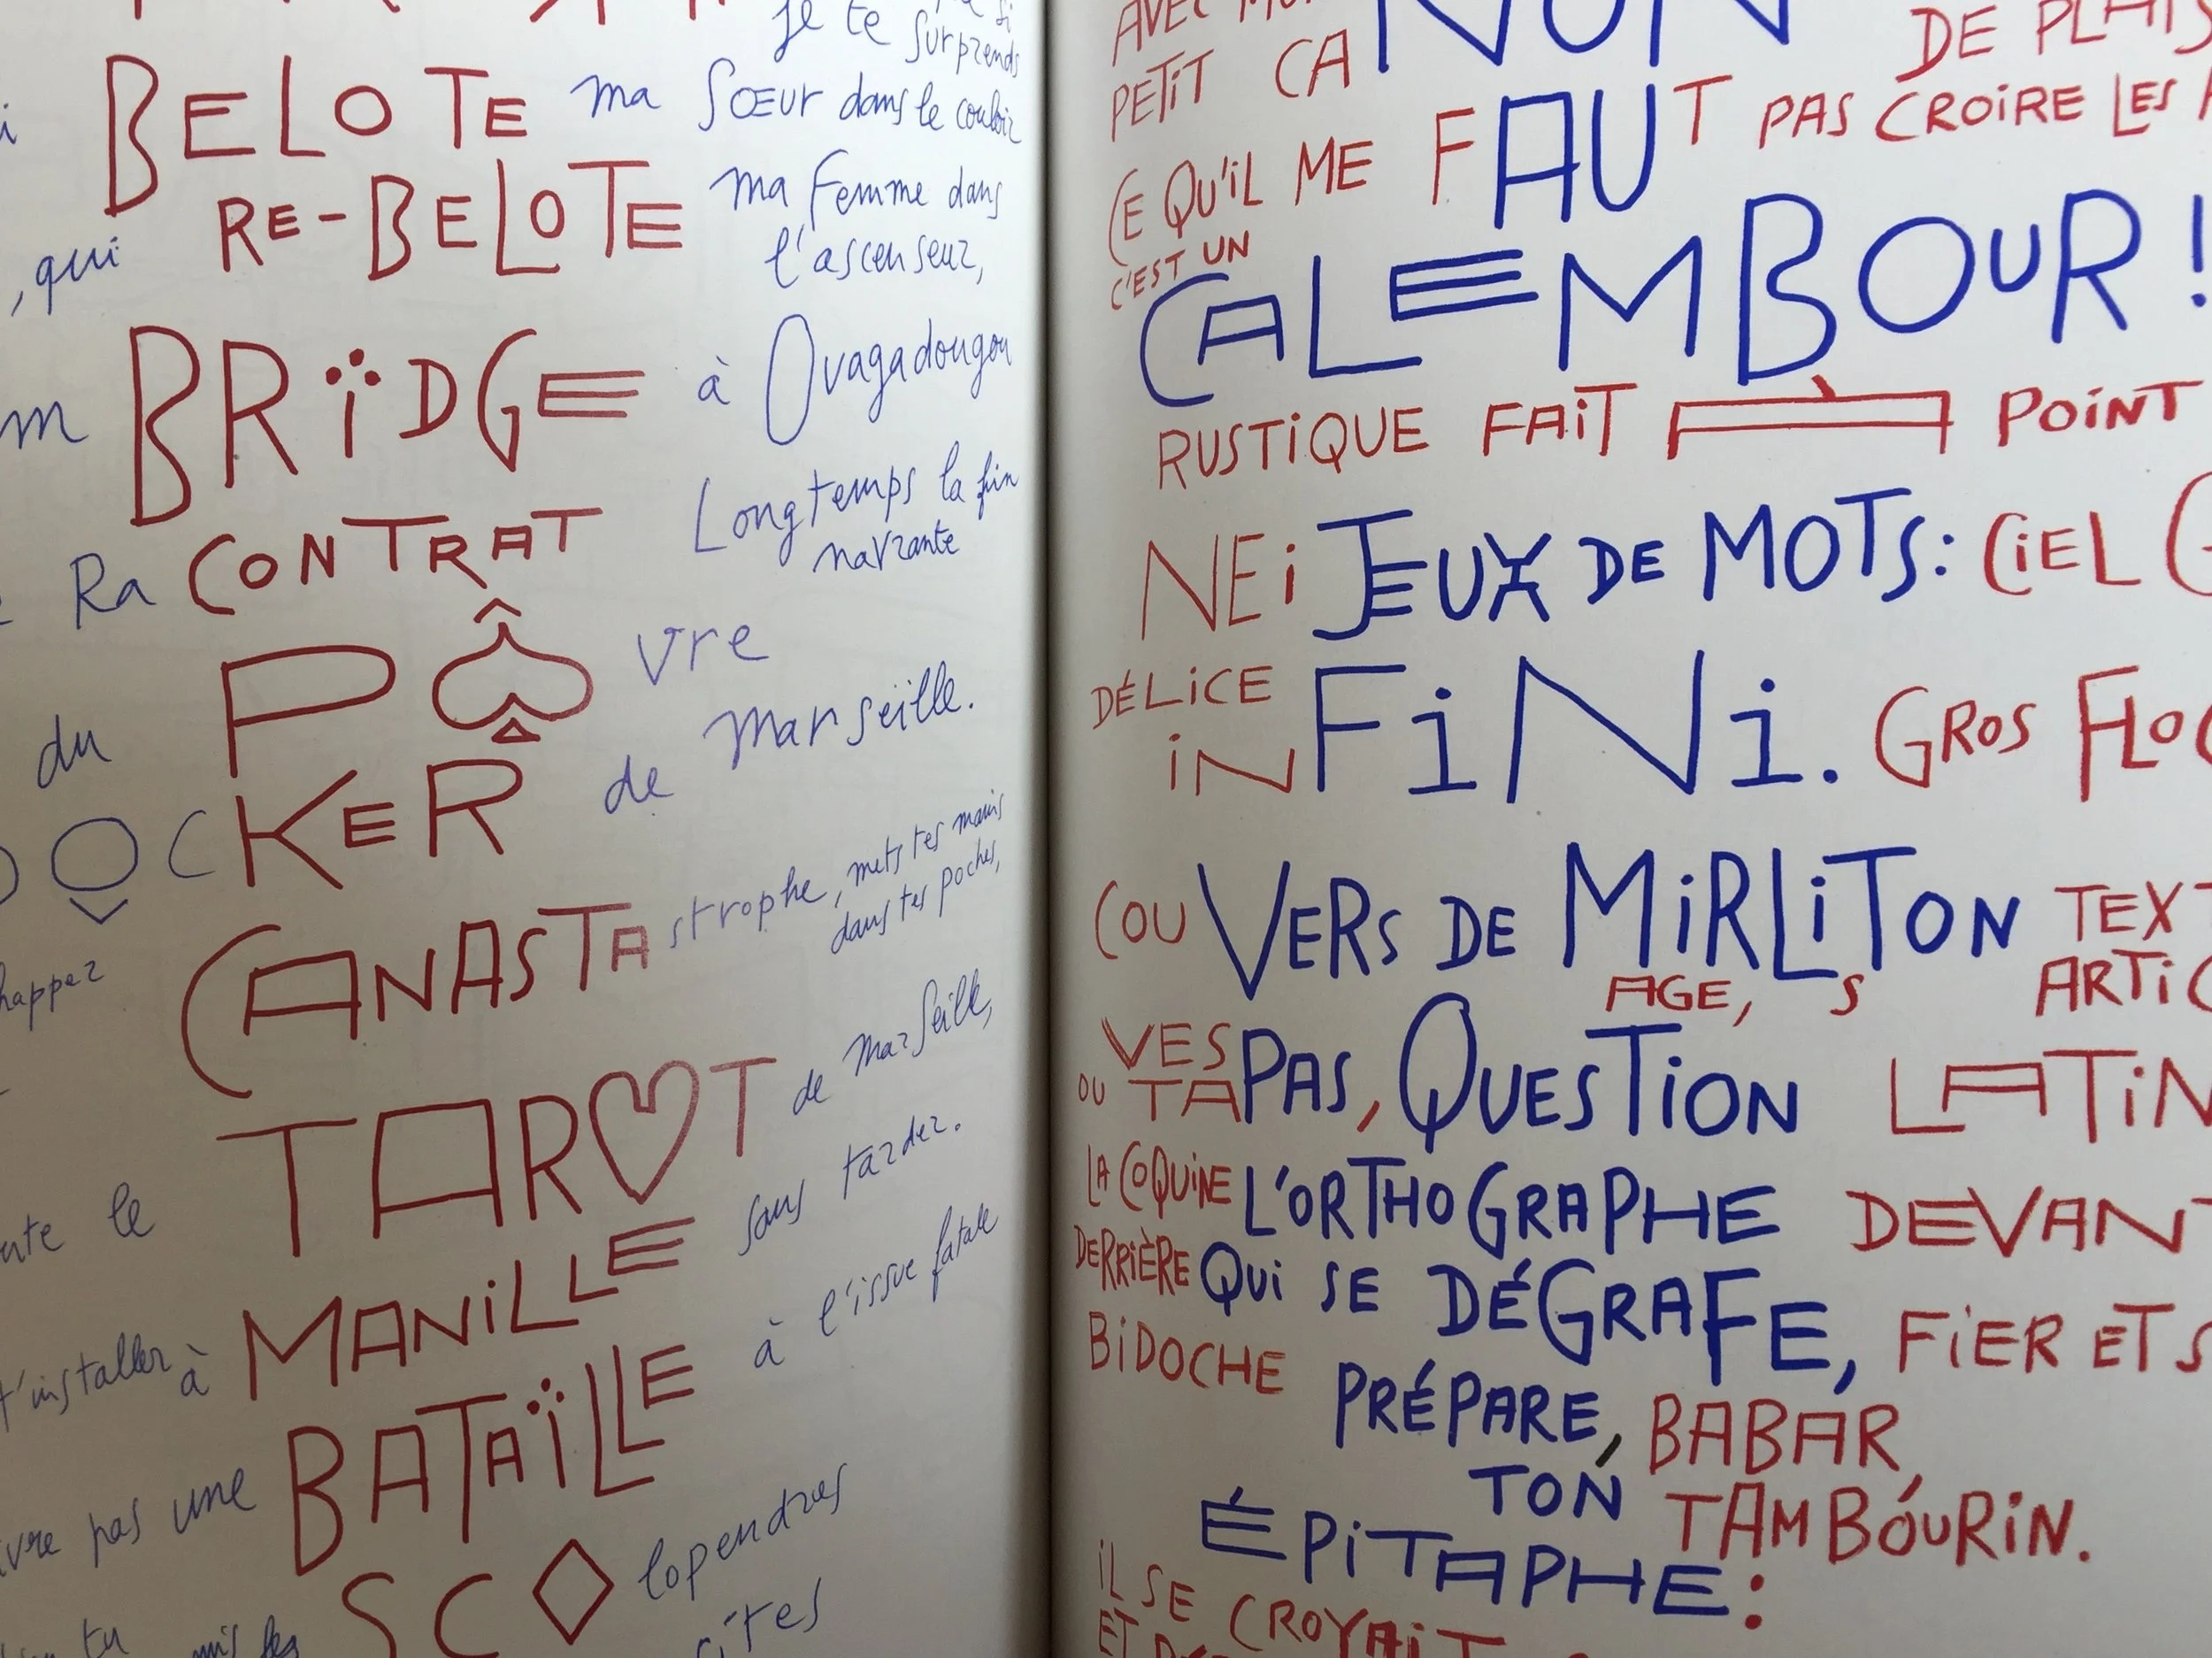 je te surprends
BELOTE ma Sœur dans le couloir
RE-BELOTE ma Femme dans
, qui l'ascenseur,
BRÏDGE à Ouagadougou
Ra CONTRAT Longtemps la fin
navrante
du PÔ vre
OCKER de Marseille.
CANASTA strophe, mets tes mains
dans tes poches,
happer
le TAROT de Marseille,
t'installer à MANILLE sans tarder.
pas une BATAÏLLE à l'issue fatale
tu mis les SCO lopendres
AVEC
PETIT CA NON DE PLAIS
CE QU'iL ME FAUT PAS CROIRE LES
C'EST UN
CALEMBOUR!
RUSTiQUE FAiT POiNT
NEi JEUX DE MOTS: CiEL G
DÉLiCE
iNFiNi. GROS FLO
COU VERS DE MiRLiTON TEXT
AGE, S ARTiC
VES PAS, QUESTiON LATiN
OU TA
LA COQUiNE L'ORTHOGRAPHE DEVANT
DERRiÈRE Qui SE DÉGRAFE, FiER ET S
BiDOCHE PRÉPARE, BABAR,
TON TAMBOURiN.
ÉPiTAPHE:
iL SE CROYAiT